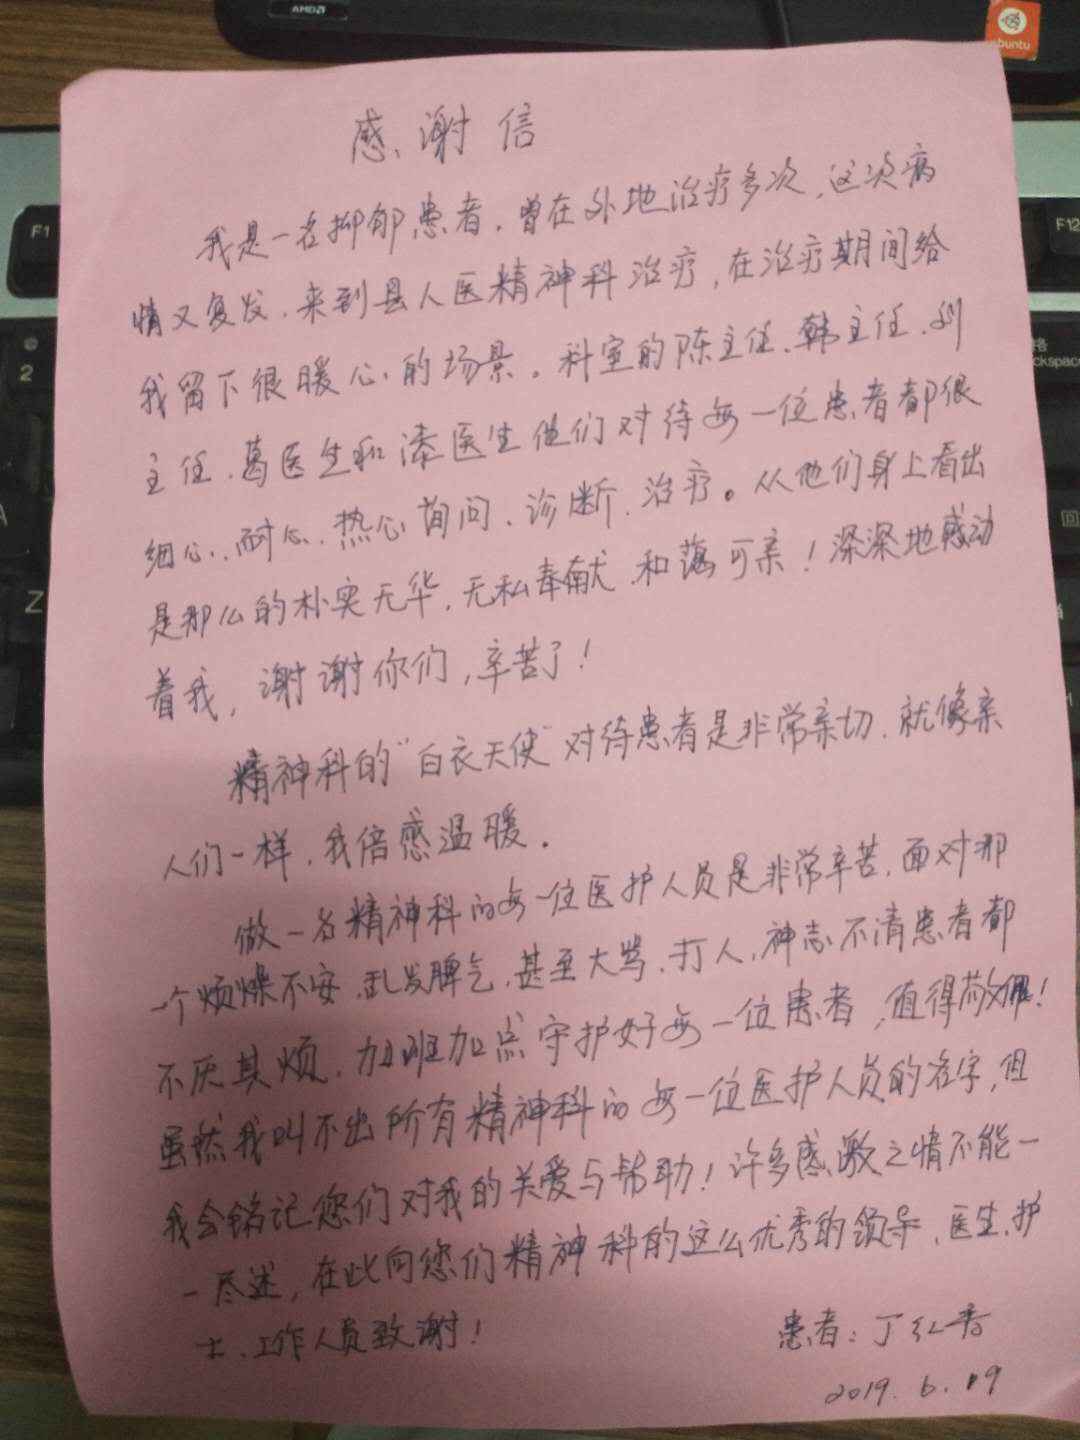 AMD
ubuntu
F1
F12
2
Z
感谢信
我是一名抑郁患者，曾在外地治疗多次，这次病
情又复发，来到县人医精神科治疗，在治疗期间给
我留下很暖心的场景。科室的陈主任、韩主任、刘
主任、葛医生和漆医生他们对待每一位患者都很
细心、耐心、热心询问、诊断、治疗。从他们身上看出
是那么的朴实无华，无私奉献，和蔼可亲！深深地感动
着我，谢谢你们，辛苦了！
精神科的“白衣天使”对待患者是非常亲切，就像亲
人们一样，我倍感温暖。
做一名精神科的每一位医护人员是非常辛苦，面对那
一个烦燥不安、乱发脾气，甚至大骂、打人，神志不清患者都
不厌其烦，加班加点守护好每一位患者，值得敬佩！
虽然我叫不出所有精神科的每一位医护人员的名字，但
我会铭记您们对我的关爱与帮助！许多感激之情不能一
一尽述，在此向您们精神科的这么优秀的领导、医生、护
士、工作人员致谢！
患者：丁红香
2019.6.19